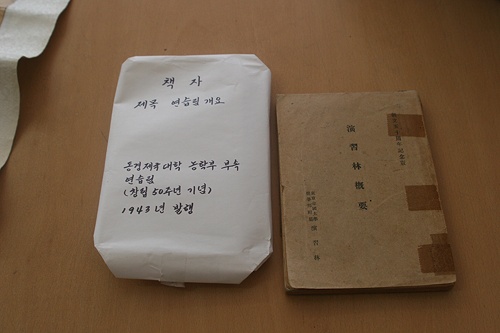 책 자
제목 연습림개요
동경제국대학 농학부 부속
연습림
(창립 50주년 기념)
1943년 발행
演習林概要
演習林